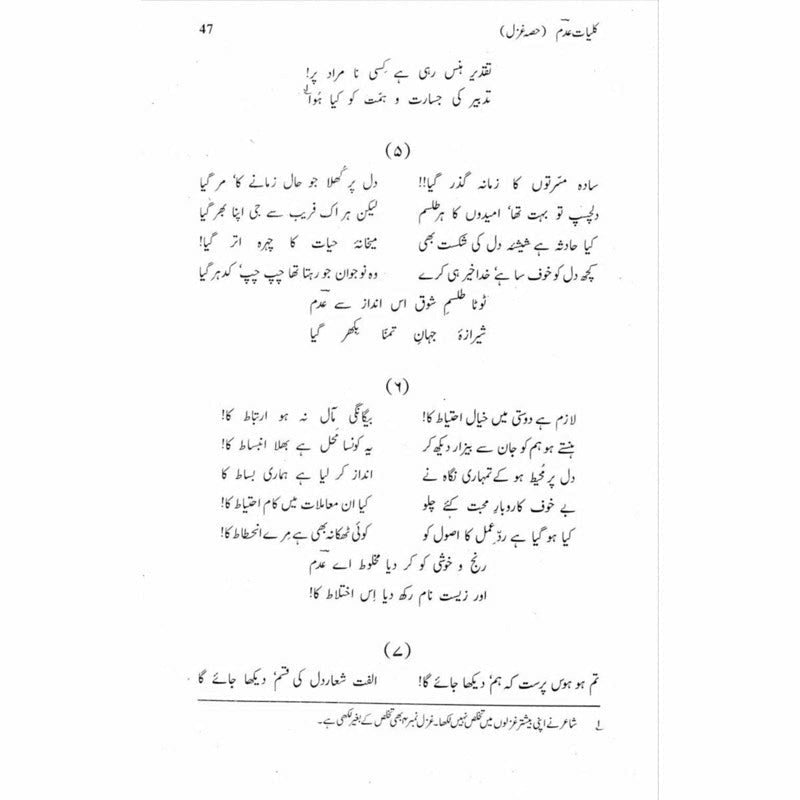 کلیات عدمؔ (حصہ غزل) 47
تقدیر ہنس رہی ہے کِسی نا مراد پر!
تدبیر کی جسارت و ہمّت کو کیا ہُوا
(۵)
سادہ مسّرتوں کا زمانہ گذر گیا!! دل پر کُھلا جو حال زمانے کا، مر گیا
دلچسپ تو بہت تھا، امیدوں کا ہر طلسم لیکن ہر اک فریب سے جی اپنا بھر گیا
کیا حادثہ ہے شیشئہ دل کی شکست بھی میخانۂ حیات کا چہرہ اتر گیا!
کچھ دل کو خوف سا ہے، خدا خیر ہی کرے وہ نوجوان جو رہتا تھا چپ چپ، کدہر گیا
ٹوٹا طلسمِ شوق اس انداز سے عدمؔ
شیرازۂ جہانِ تمنّا بکھر گیا
(۶)
لازم ہے دوستی میں خیال احتیاط کا! بیگانگی مآل نہ ہو ارتباط کا!
ہنستے ہو ہم کو جان سے بیزار دیکھ کر یہ کونسا محل ہے بھلا انبساط کا!
دل پر مُحیط ہو کے تمہاری نگاہ نے انداز کر لیا ہے ہماری بساط کا
بے خوف کاروبارِ محبت کئے چلو کیا ان معاملات میں کام احتیاط کا!
کیا ہو گیا ہے ردِّ عمل کا اصول کو کوئی ٹھکانہ بھی ہے مِرے انحطاط کا!
رنج و خوشی کو کر دیا مخلوط اے عدمؔ
اور زیست نام رکھ دیا اِس اختلاط کا!
(۷)
تم ہو ہوس پرست کہ ہم، دیکھا جائے گا! الفت شعار دل کی قسم، دیکھا جائے گا
لے شاعر نے اپنی بیشتر غزلوں میں تخلص نہیں لکھا۔ غزل نمبر ۴ بھی تخلص کے بغیر لکھی ہے۔